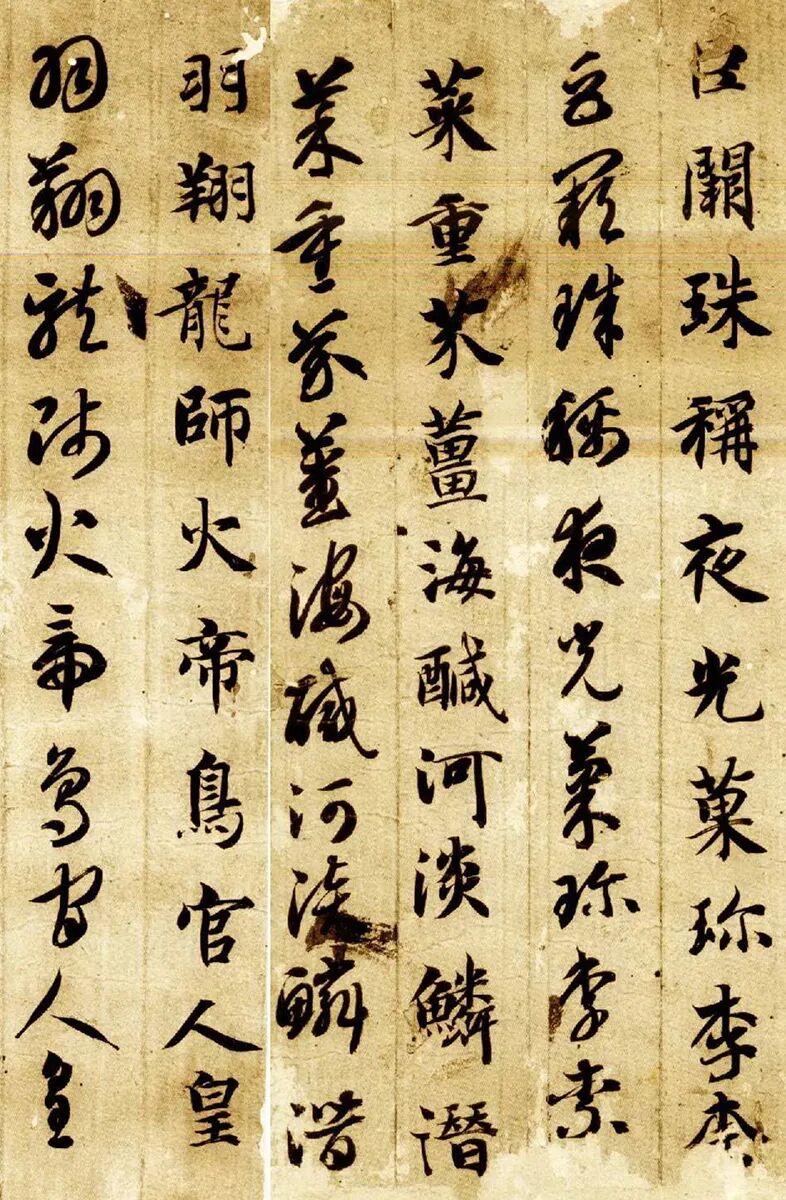 巨闕珠稱夜光菓珎李柰
巨闕珠稱夜光菓珎李柰
菜重芥薑海醎河淡鱗潛
菜重芥薑海醎河淡鱗潛
羽翔龍師火帝鳥官人皇
羽翔龍師火帝鳥官人皇